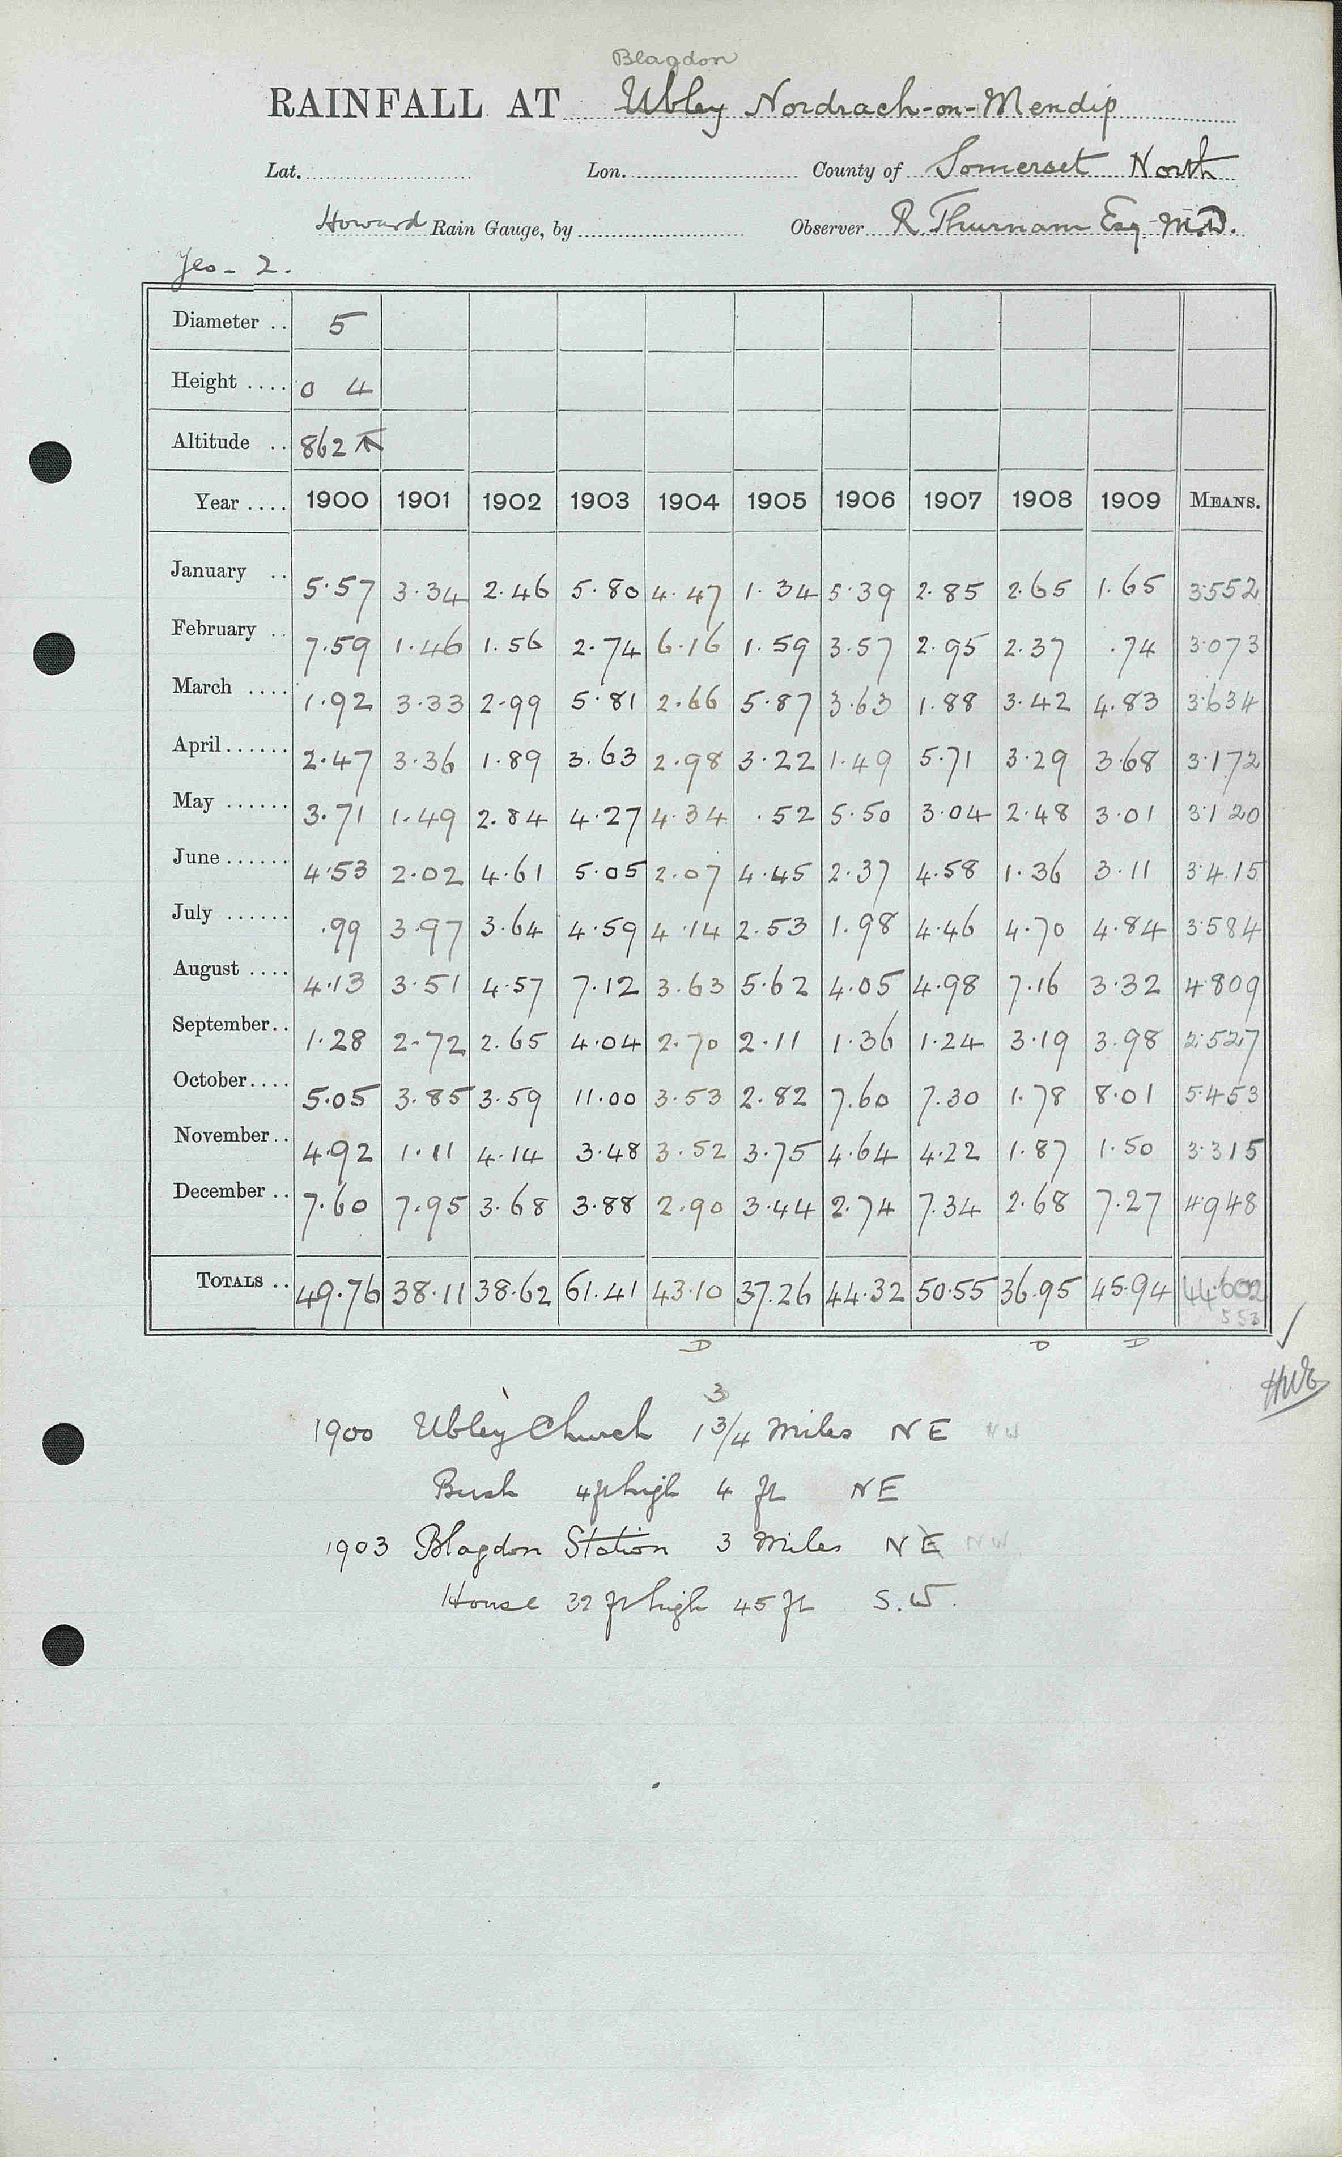 Blagdon
RAINFALL AT Ubley Nordrach-on-Mendip
Lat. Lon. County of Somerset North
Howard Rain Gauge, by Observer R Thurnam Esq M.D.
Yes - 2.
Diameter .. 5
Height .... 0 4
Altitude .. 862
Year .... 1900 1901 1902 1903 1904 1905 1906 1907 1908 1909 MEANS.
January .. 5.57 3.34 2.46 5.80 4.47 1.34 5.39 2.85 2.65 1.65 3.552
February .. 7.59 1.46 1.56 2.74 6.16 1.59 3.57 2.95 2.37 .74 3.073
March .... 1.92 3.33 2.99 5.81 2.66 5.87 3.63 1.88 3.42 4.83 3.634
April...... 2.47 3.36 1.89 3.63 2.98 3.22 1.49 5.71 3.29 3.68 3.172
May ...... 3.71 1.49 2.84 4.27 4.34 .52 5.50 3.04 2.48 3.01 3.120
June...... 4.53 2.02 4.61 5.05 2.07 4.45 2.37 4.58 1.36 3.11 3.415
July ...... .99 3.97 3.64 4.59 4.14 2.53 1.98 4.46 4.70 4.84 3.584
August .... 4.13 3.51 4.57 7.12 3.63 5.62 4.05 4.98 7.16 3.32 4.809
September.. 1.28 2.72 2.65 4.04 2.70 2.11 1.36 1.24 3.19 3.98 2.527
October.... 5.05 3.85 3.59 11.00 3.53 2.82 7.60 7.30 1.78 8.01 5.453
November.. 4.92 1.11 4.14 3.48 3.52 3.75 4.64 4.22 1.87 1.50 3.315
December .. 7.60 7.95 3.68 3.88 2.90 3.44 2.74 7.34 2.68 7.27 4.948
TOTALS .. 49.76 38.11 38.62 61.41 43.10 37.26 44.32 50.55 36.95 45.94 44.602
553
D D D
3
1900 Ubley Church 1 3/4 Miles NE NW
Bush 4ft high 4 ft NE
1903 Blagdon Station 3 Miles NE NW
House 32 ft high 45 ft S.W.